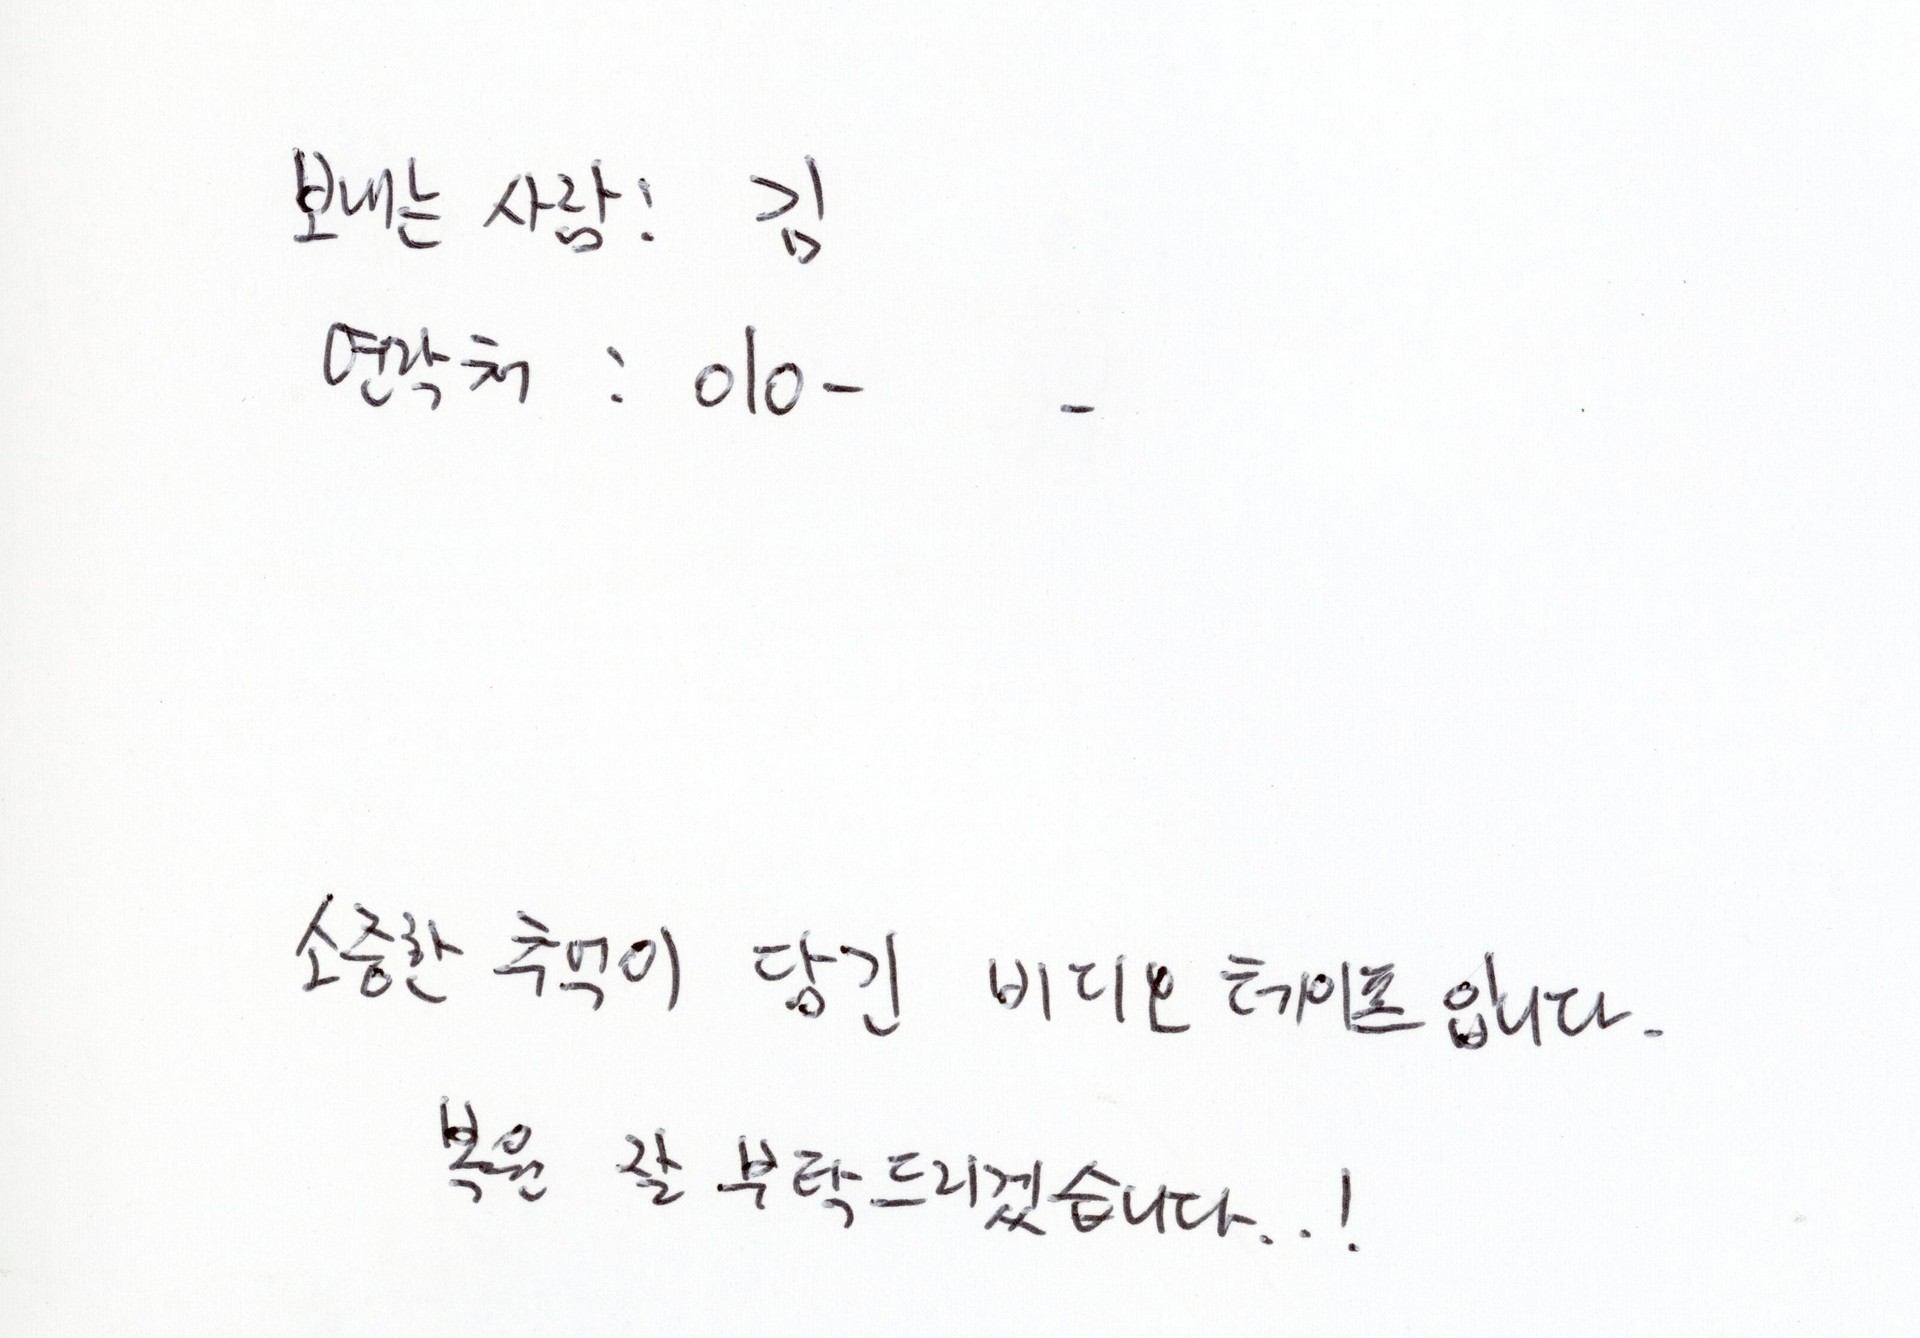 보내는 사람: 김
연락처 : 010- -
소중한 추억이 담긴 비디오 테이프 입니다.
복원 잘 부탁드리겠습니다..!